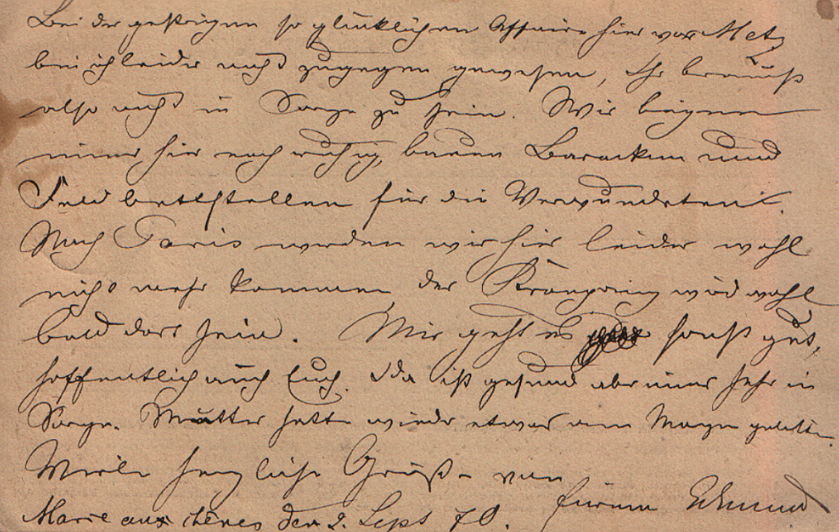 Bei der gestrigen so glücklichen Affaire hier vor Metz
bin ich leider nicht zugegen gewesen, Ihr braucht
also nicht in Sorge zu sein. Wir liegen
immer hier noch ruhig, bauen Baracken und
Feldbettstellen für die Verwundeten.
Nach Paris werden wir hier leider wohl
nicht mehr kommen der Kronprinz wird wohl
bald dort sein. Mir geht es sonst gut,
hoffentlich auch Euch. Ida ist gesund aber immer sehr in
Sorge. Mutter hatte wieder etwas am Magen gelitten.
Viele herzliche Grüße von
Eurem Edmund
Marie aux chênes den 2. Sept 70.